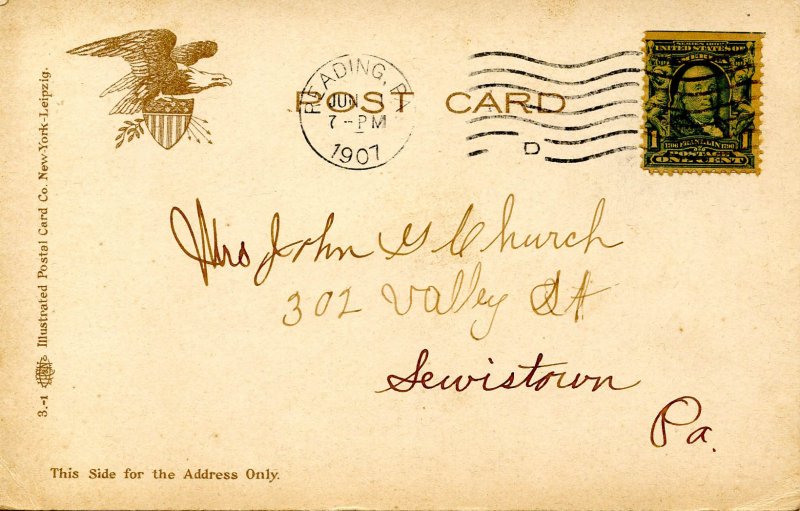 POST CARD
READING, PA.
JUN
7-PM
1907
D
SERIES 1902
UNITED STATES OF AMERICA
1
1706 FRANKLIN 1790
POSTAGE
ONE CENT
Mrs John G Church
302 Valley St
Lewistown
Pa.
3.-1 Illustrated Postal Card Co. New-York-Leipzig.
This Side for the Address Only.